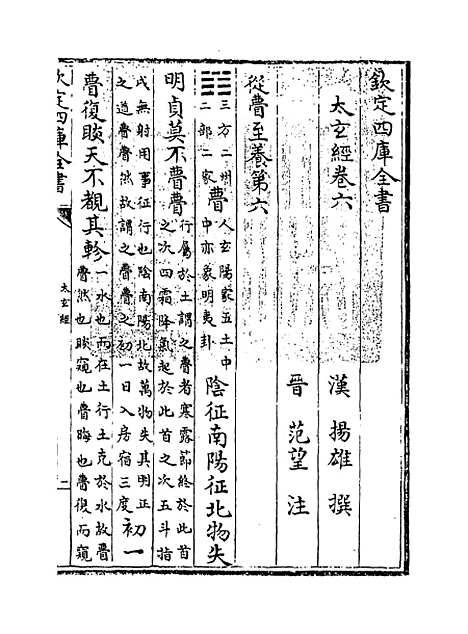 欽定四庫全書
太玄經卷六
漢 揚雄 撰
晉 范望 注
從瞢至養第六
三方二州
二部二家
瞢
人玄陽家五土中
中亦象明夷卦
陰征南陽征北物失
明貞莫不瞢瞢
行屬於土謂之瞢者寒露節終於此首
之次四霜降氣起於此首之次五斗指
戌無射用事征行也陰南陽北故萬物失其明正
之道瞢瞢然故謂之瞢瞢之初一日入房宿三度
初一
瞢復睒天不覩其軫
一水也而在土行土克於水故瞢
瞢然也睒窺也瞢晦也瞢復而窺
欽定四庫全書
太玄經